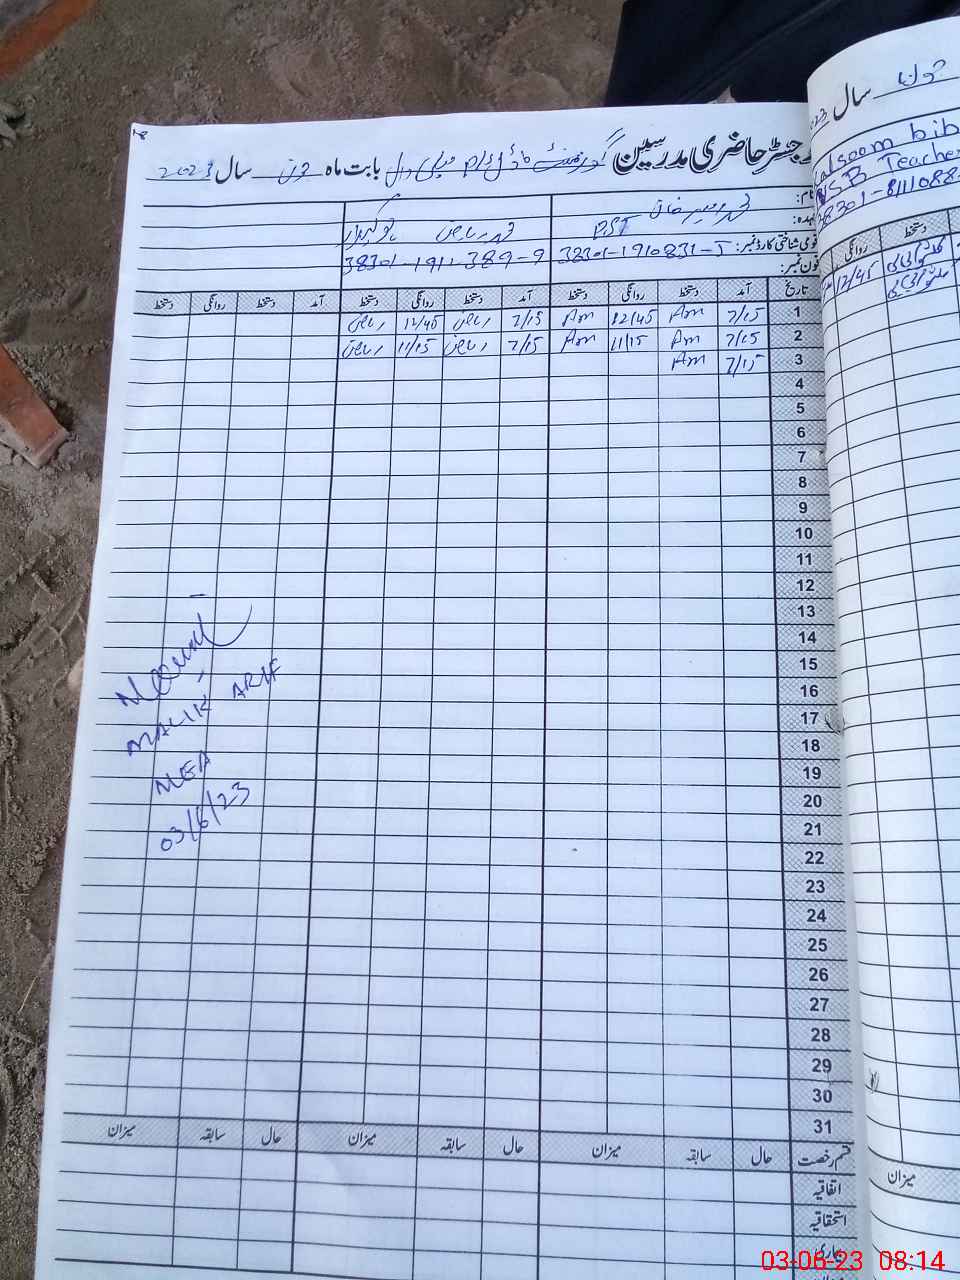 رجسٹر حاضری مدرسین گورنمنٹ ماڈل پرائمری بابت ماہ جون سال 2023
نام:
عہدہ: PST
محمد ریاض
قومی شناختی کارڈ نمبر: 38301-1910831-5 38301-1911389-9
فون نمبر:
تاریخ آمد دستخط روانگی دستخط آمد دستخط روانگی دستخط آمد دستخط روانگی دستخط
1 7/15 Am 12/45 Am 7/15 ریاض 12/45 ریاض
2 7/15 Am 11/15 Am 7/15 ریاض 11/15 ریاض
3 7/15 Am
4
5
6
7
8
9
10
11
12
13
14
15
16
17
18
19
20
21
22
23
24
25
26
27
28
29
30
31
قسم رخصت حال سابقہ میزان حال سابقہ میزان حال سابقہ میزان
اتفاقیہ
استحقاقیہ
بیماری
MALIK ARIF
MEA
03/6/23
جون سال
Kalsoom bib
Teacher
38301-8111088-
دستخط روانگی
12/45
میزان
03-06-23 08:14